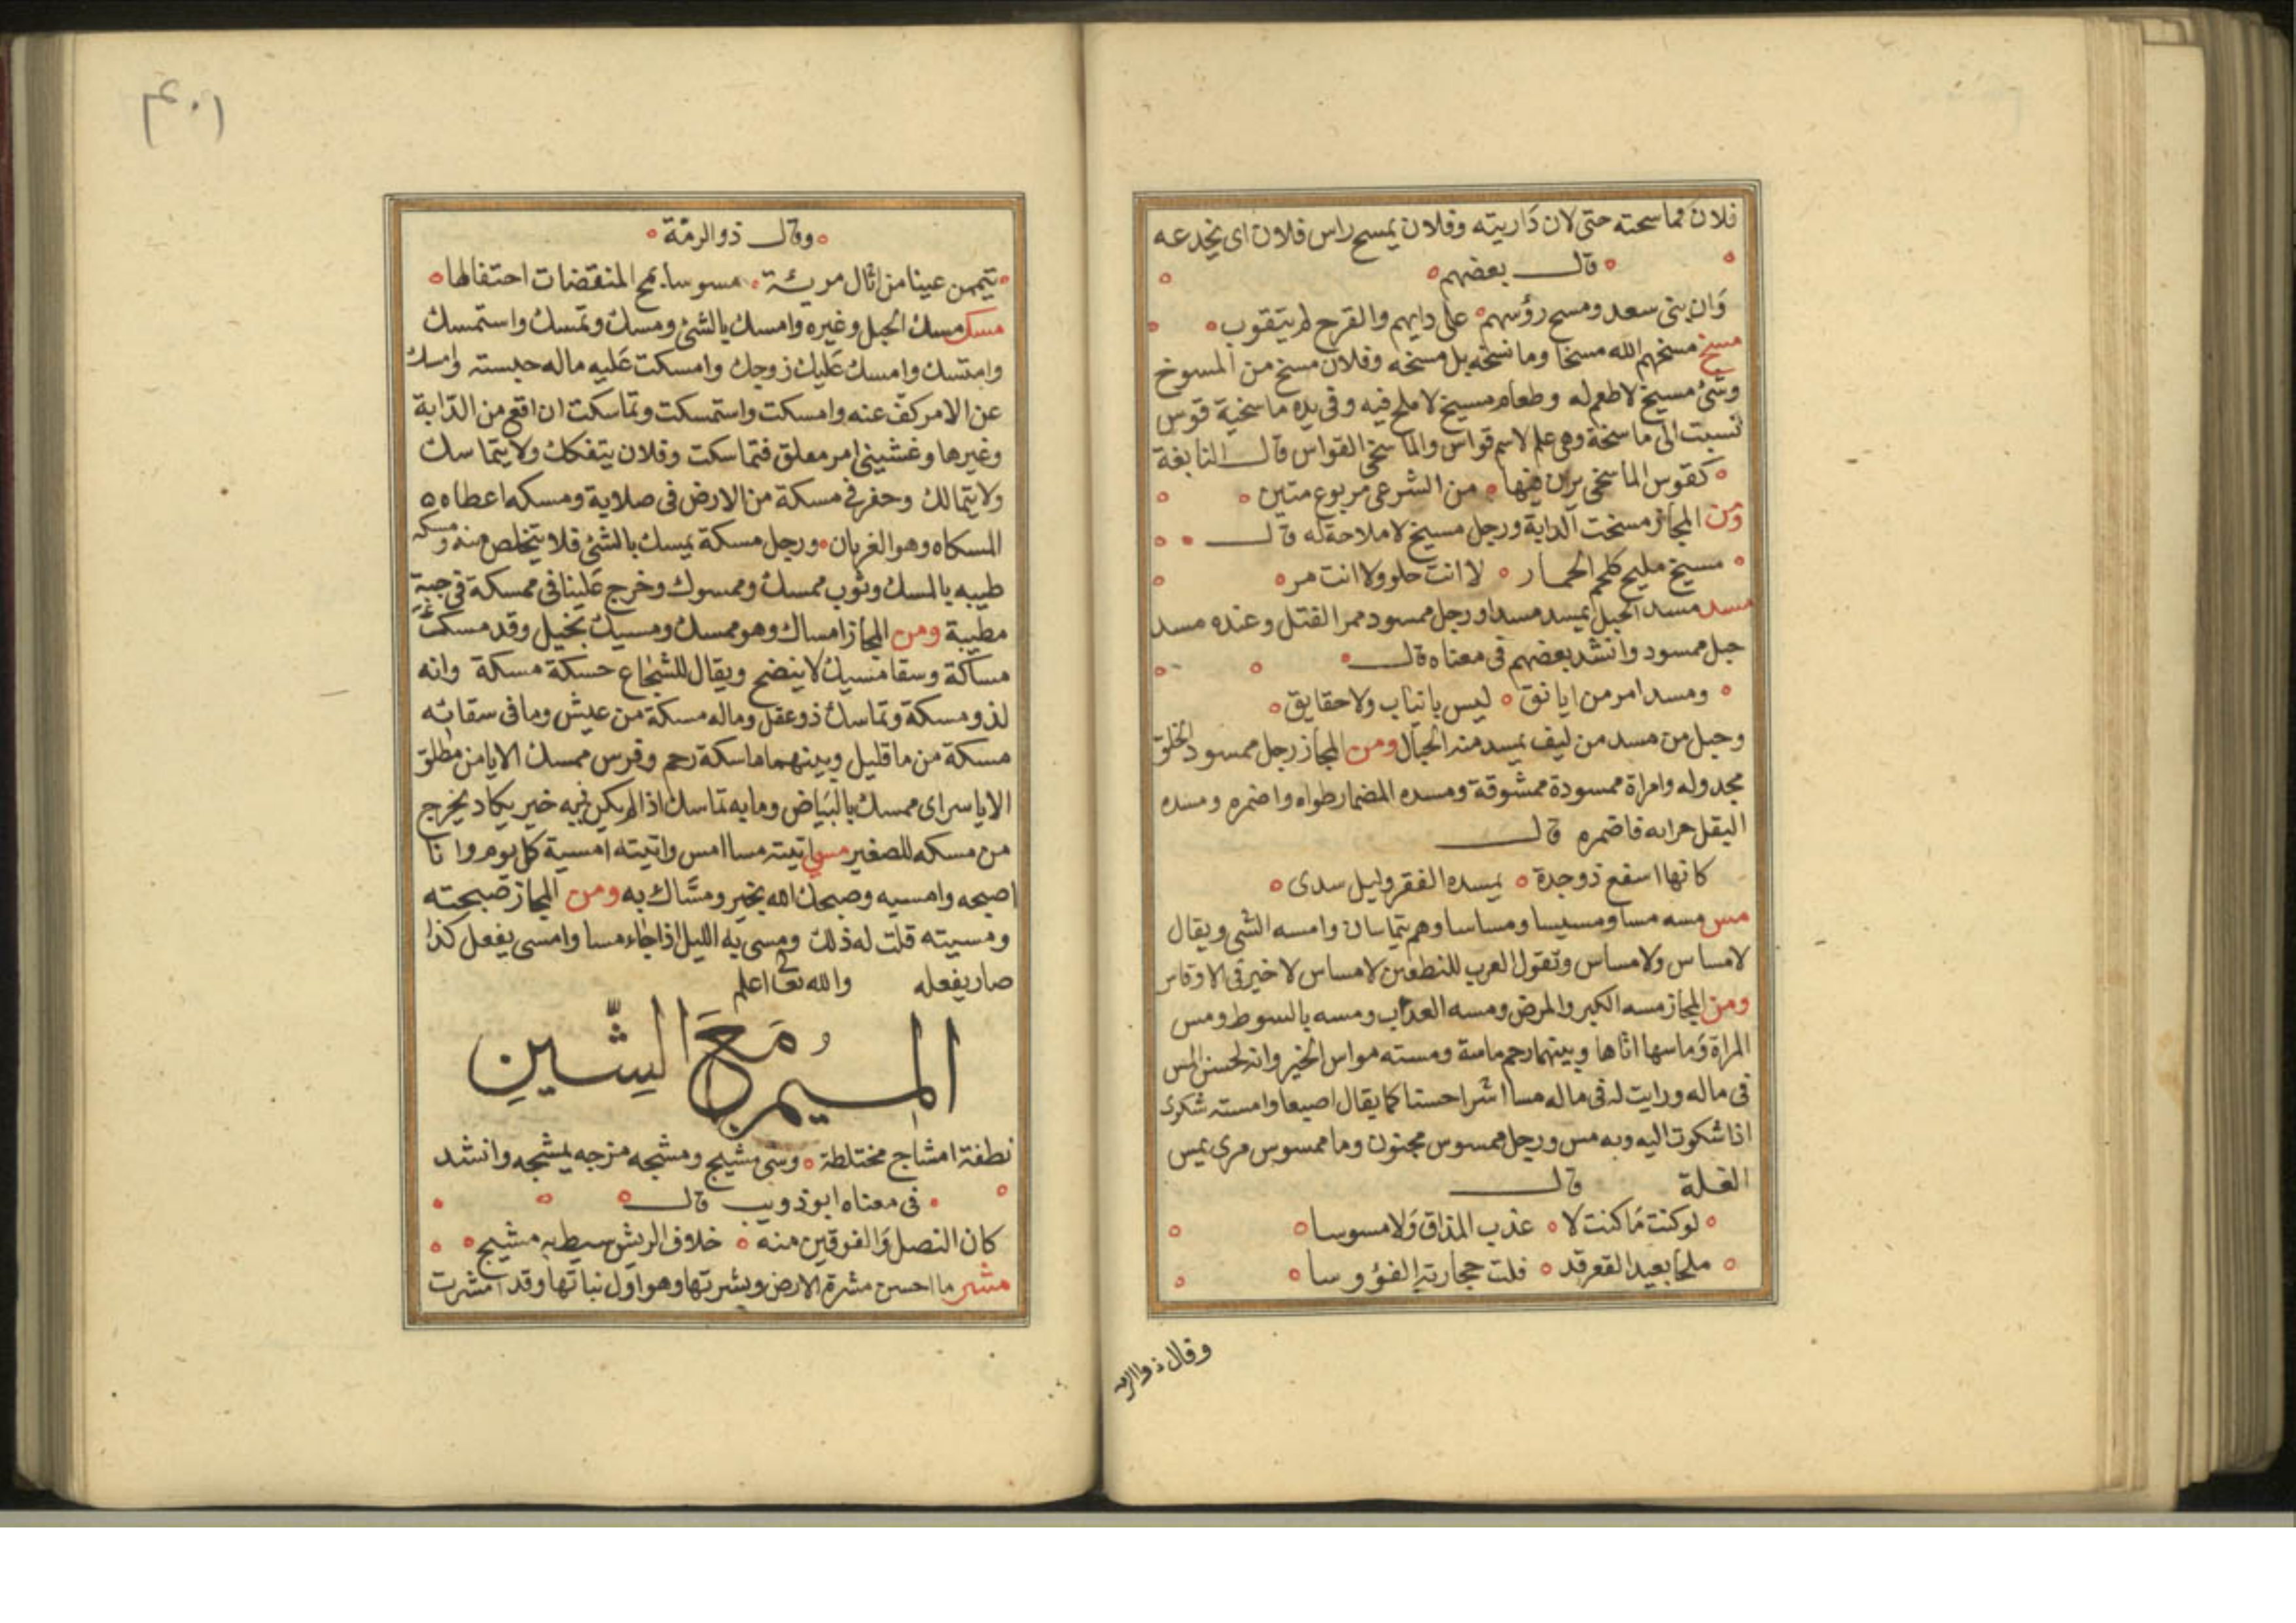 فلان فماسحته حتى لان داريته وفلان يمسح راس فلان اى يخدعه
قال بعضهم
وان بنى سعد ومسح رؤسهم على دايهم والقرح لم يتقوب
مسخ مسخهم الله مسخا وما نسخه بل مسخه وفلان مسخ من المسوخ
وشئ مسيخ لا طعم له وطعام مسيخ لا ملح فيه وفى يده ماسخية قوس
نسبت الى ماسخة وهى علم لاسم قواس والماسخى القواس قال النابغة
كقوس الماسخى يرن فيها من الشرعى مربوع متين
ومن المجاز مسخت الدابة ورجل مسيخ لا ملاحة له قال
مسيخ مليخ كلحم الحمار لا انت حلو ولا انت مر
مسد مسد الحبل يمسد مسدا ورجل ممسود ممر الفتل وعنده مسد
حبل ممسود وانشد بعضهم فى معناه قال
ومسد امر من ايانق ليس بانياب ولا حقايق
وحبل من مسد من ليف يمسد منه الحبال ومن المجاز رجل ممسود الخلق
مجدوله وامراة ممسودة ممشوقة ومسده المضمار طواه واضمره ومسده
البقل فاضمره قال
كانها اسفع ذو جدة يمسده الفقر وليل سدى
مس مسه مسا ومسيسا ومساسا وهم يتماسان وامسه الشى ويقال
لا مساس ولا مساس وتقول العرب لا مساس لا خير فى الاوقاس
ومن المجاز مسه الكبر والمرض ومسه العذاب ومسه بالسوط ومس
المراة وماسها اتاها وبينهما رحم ماسة ومسته مواس الخير وانه لحسن المس
فى ماله ورايت له فى ماله مسا اثرا حسنا كما يقال اصبعا وامسته شكوى
اذا شكوت اليه وبه مس ورجل ممسوس مجنون وما ممسوس مرى يمس
الغلة قال
لو كنت ما كنت لا عذب المذاق ولا مسوسا
ملحا بعيد القعر قد فلت حجارته الفؤوسا
وقال ذوالرمة
وقال ذوالرمة
تيممن عينا من اثال مسوسا المنقضات احتفالها
مسك مسك الحبل وغيره وامسك بالشئ ومسك وتمسك واستمسك
وامتسك وامسك عليك زوجك وامسكت عليه ماله حبسته وامسك
عن الامر كف عنه وامسكت واستمسكت وتماسكت ان اقع من الدابة
وغيرها وغشينى امر معلق فتماسكت وفلان يتفكك ولا يتماسك
ولا يتمالك وحفر فى مسكة من الارض فى صلابة ومسكه اعطاه
المسكاه وهو الغربان ورجل مسكة يمسك بالشئ فلا يتخلص منه ومسكه
طيبه بالمسك وثوب ممسك وممسوك وخرج علينا فى ممسكة فى جبة
مطيبة ومن المجاز امساك وهو ممسك ومسيك بخيل وقد مسك
مساكة وسقا مسيك لا ينضح ويقال للشجاع حسكة مسكة وانه
لذو مسكة وتماسك ذو عقل وماله مسكة من عيش وما فى سقائه
مسكة من ما قليل وبينهما ماسكة رحم وفرس ممسك الايامن مطلق
الاياسر اى ممسك بالبياض وما به تماسك اذا لم يكن فيه خير يكاد يخرج
من مسكه للصغير مسى اتيته مسا امس واتيته امسية كل يوم وانا
اصبحه وامسيه وصبحك الله بخير ومساك به ومن المجاز صبحته
ومسيته قلت له ذلك ومسى به الليل اذا جاء مسا وامسى يفعل كذا
صار يفعله والله تعالى اعلم
الميم مع الشين
نطفة امشاج مختلطة وشى مشيج ومشجه مزجه يمشجه وانشد
فى معناه ابو ذويب قال
كان النصل والفوقين منه خلاف الريش سيط به مشيج
مشر ما احسن مشرة الارض وبشرتها وهو اول نباتها وقد امشرت